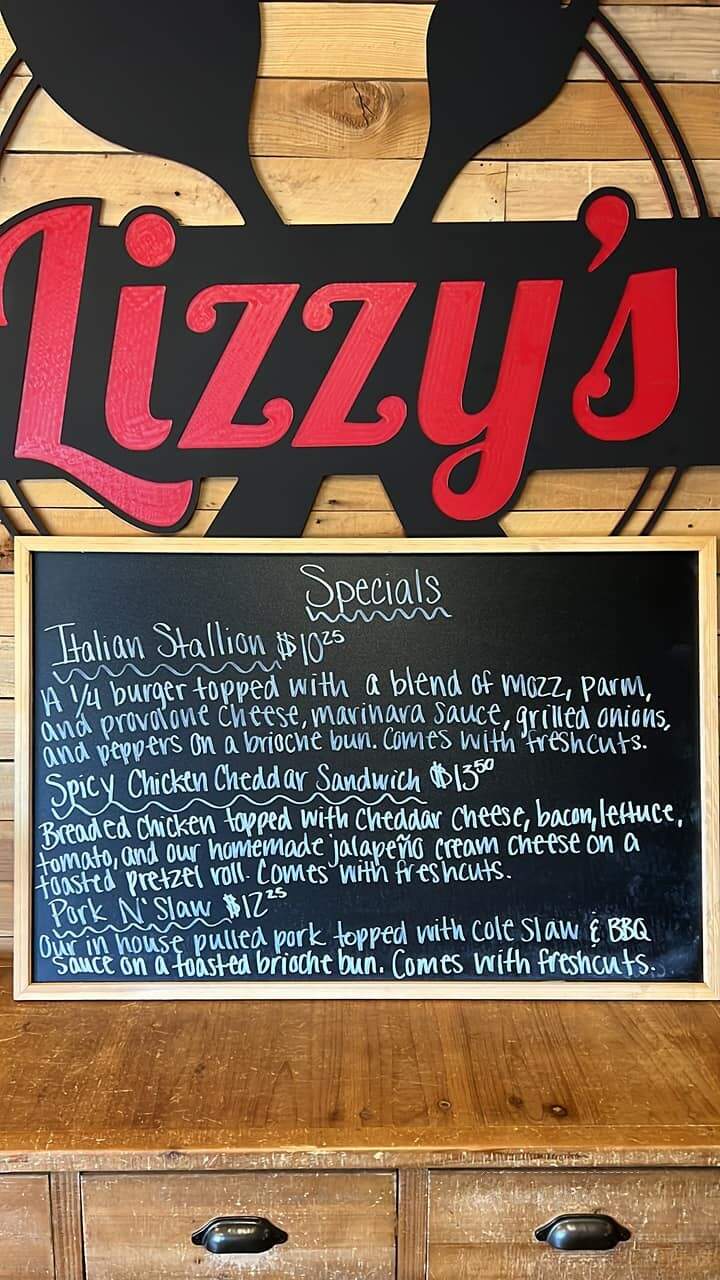 Lizzy's
Specials
Italian Stallion $10.25
A 1/4 burger topped with a blend of mozz, parm,
and provolone cheese, marinara sauce, grilled onions,
and peppers on a brioche bun. Comes with freshcuts.
Spicy Chicken Cheddar Sandwich $13.50
Breaded Chicken topped with cheddar cheese, bacon, lettuce,
tomato, and our homemade jalapeño cream cheese on a
toasted pretzel roll. Comes with freshcuts.
Pork N' Slaw $12.25
Our in house pulled pork topped with cole slaw & BBQ
sauce on a toasted brioche bun. Comes with freshcuts.